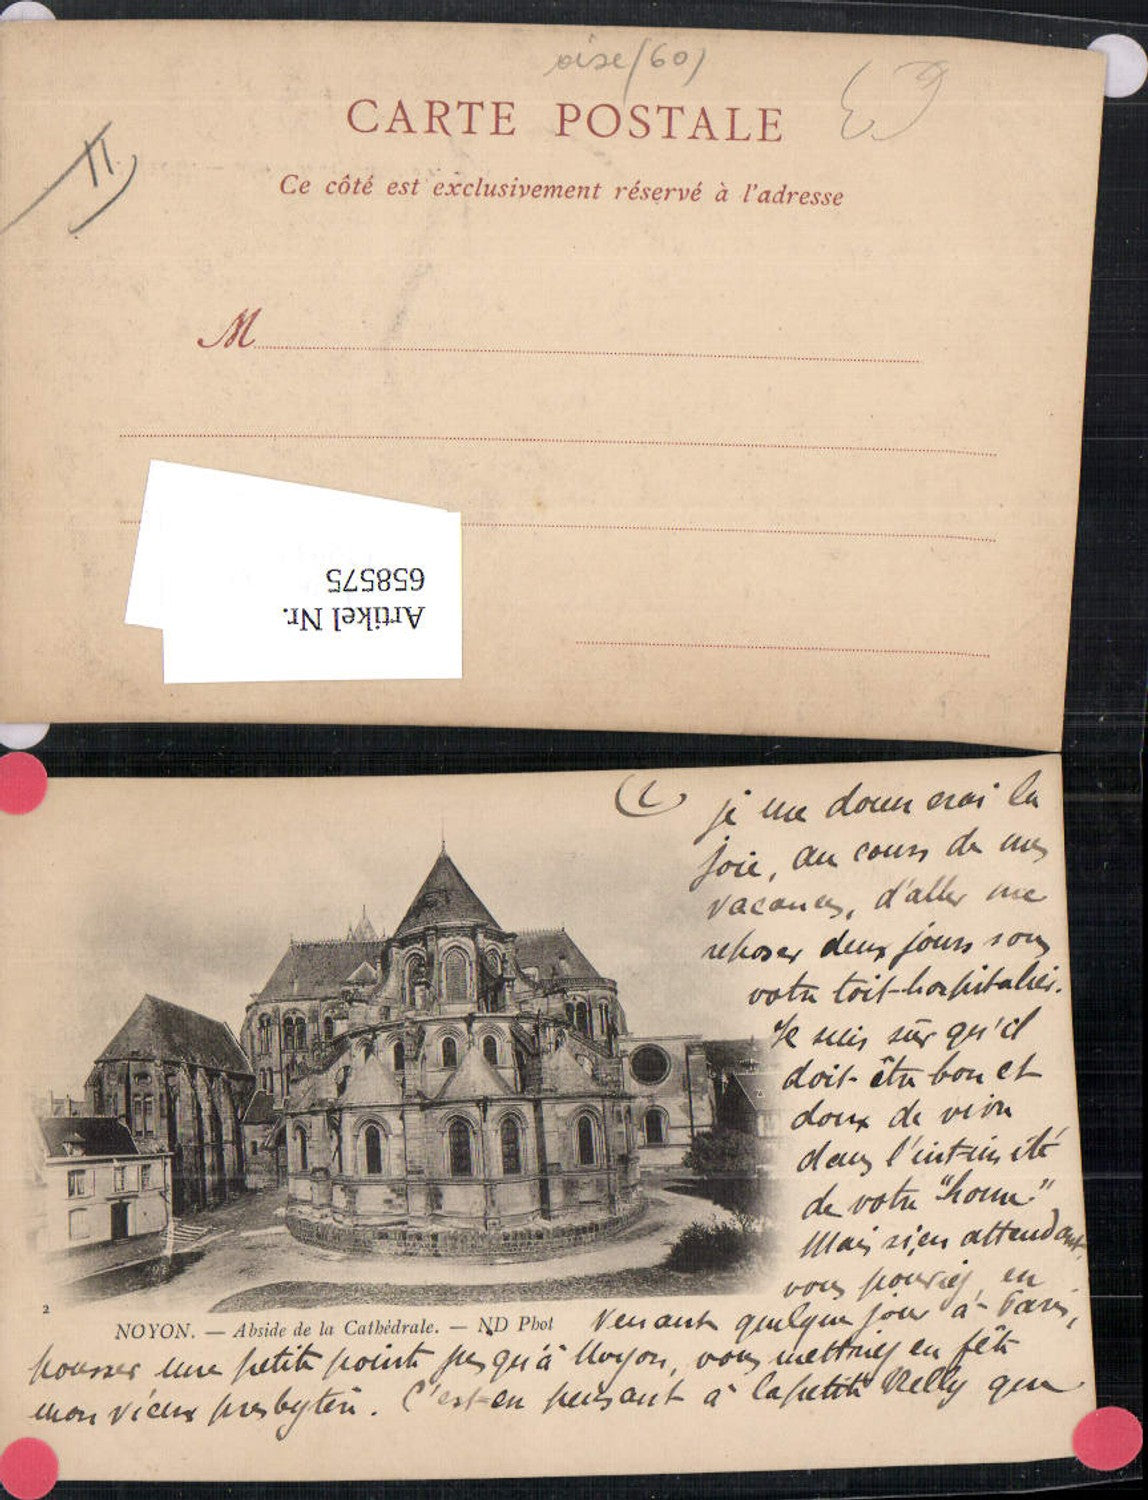 oise (60)
CARTE POSTALE
Ce côté est exclusivement réservé à l'adresse
M
Artikel Nr.
658575
je me donnerai la
joie, au cours de mes
vacances, d'aller me
reposer deux jours sous
votre toit hospitalier.
Je suis sûr qu'il
doit être bon et
doux de vivre
dans l'intimité
de votre "home"
Mais si, en attendant,
vous pouviez, en
venant quelque jour à Paris,
pousser une petite pointe jusqu'à Noyon, vous mettriez en fête
mon vieux presbytère. C'est en pensant à la petite Nelly que
2
NOYON. — Abside de la Cathédrale. — ND Phot